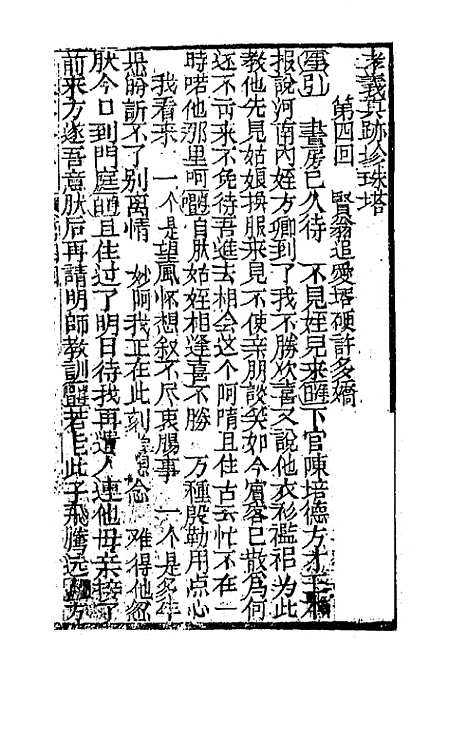 孝義真跡珍珠塔
第四回　賢翁追愛壻硬許多嬌
引　書房已久待　不見姪兒來　下官陳培德方才王
报說河南內姪方卿到了我不勝欢喜又說他衣衫襤褸为此
教他先見姑娘換服來見不使亲朋談笑如今賓客已散為何
还不可来不免待吾進去相会这个阿隋且住古云忙不在一
時喏他那里呵　自肰姑姪相逢喜不勝　万種殷勤用点心
我看来　一个是望風怀想叙不尽衷腸事　一个是多年
訴不了别离情　妙阿我正在此刻念　难得他
肰今日到門庭　且住过了明日待我再遣人連他母亲接了
前来方遂吾意肰后再請明師教訓　若此子飛騰远方